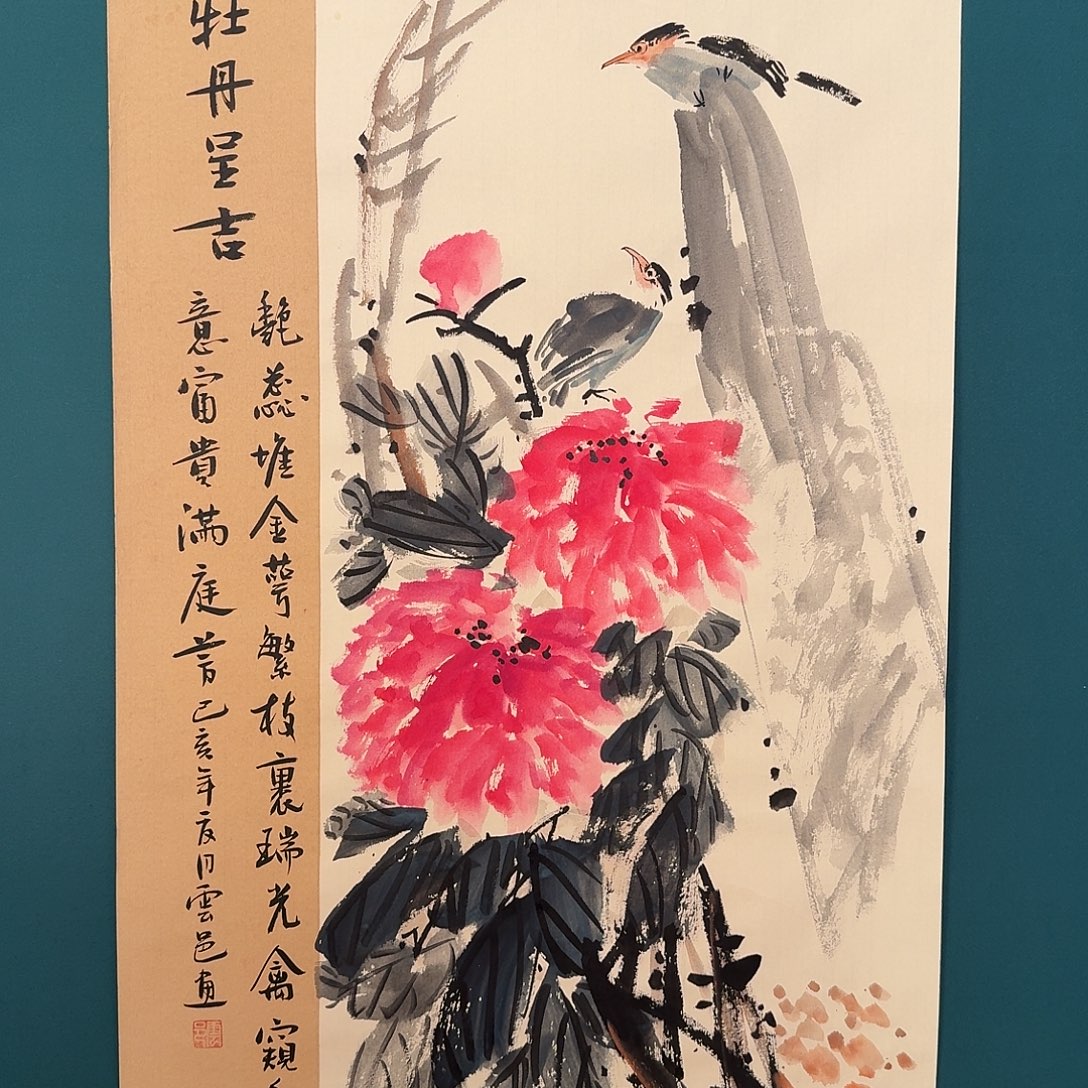 牡丹呈吉
艷蕊堆金萼繁枝裹瑞光禽窺
意富貴満庭芳
己亥年夏月雲邑画